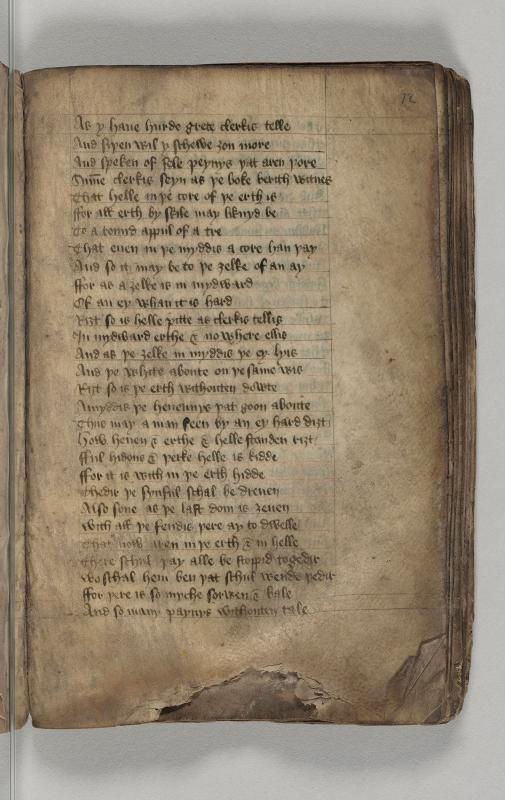 12
As y haue hurde grete clerkis telle
And siþen wil y schewe ȝou more
And speken of fele peynys þat aren þore
Sum̅e clerkis seyn as þe boke berith witnes
That helle in þe core of þe erth is
ffor all erth by skile may likned be
To a round appul of a tre
That euen in þe myddis a core han þay
And so it may be to þe ȝelke of an ay
ffor as a ȝelke is in mydward
Of an ey whan it is hard
Riȝt so is helle pitte as clerkis tellis
In mydward erthe & nowhere ellis
And as þe ȝelke in myddis þe ey lyis
And þe white aboute on þe same wis
Riȝt so is þe erth withouten dowte
Amyddis þe heuenys þat goon aboute
Thus may a man seen by an ey hard diȝt
How heuen & erthe & helle standen riȝt
fful hidous & þerke helle is kidde
ffor it is with in þe erth hidde
Thedir þe synful schal be dreuen
Also sone as þe last dom is ȝeuen
With all þe fendis þere ay to dwelle
That now aren in þe erth & in helle
There schul þay alle be stoppid togedir
Wo schal hem ben þat schul wende þedir
ffor þere is so myche sorwen & bale
And so many paynys withouten tale